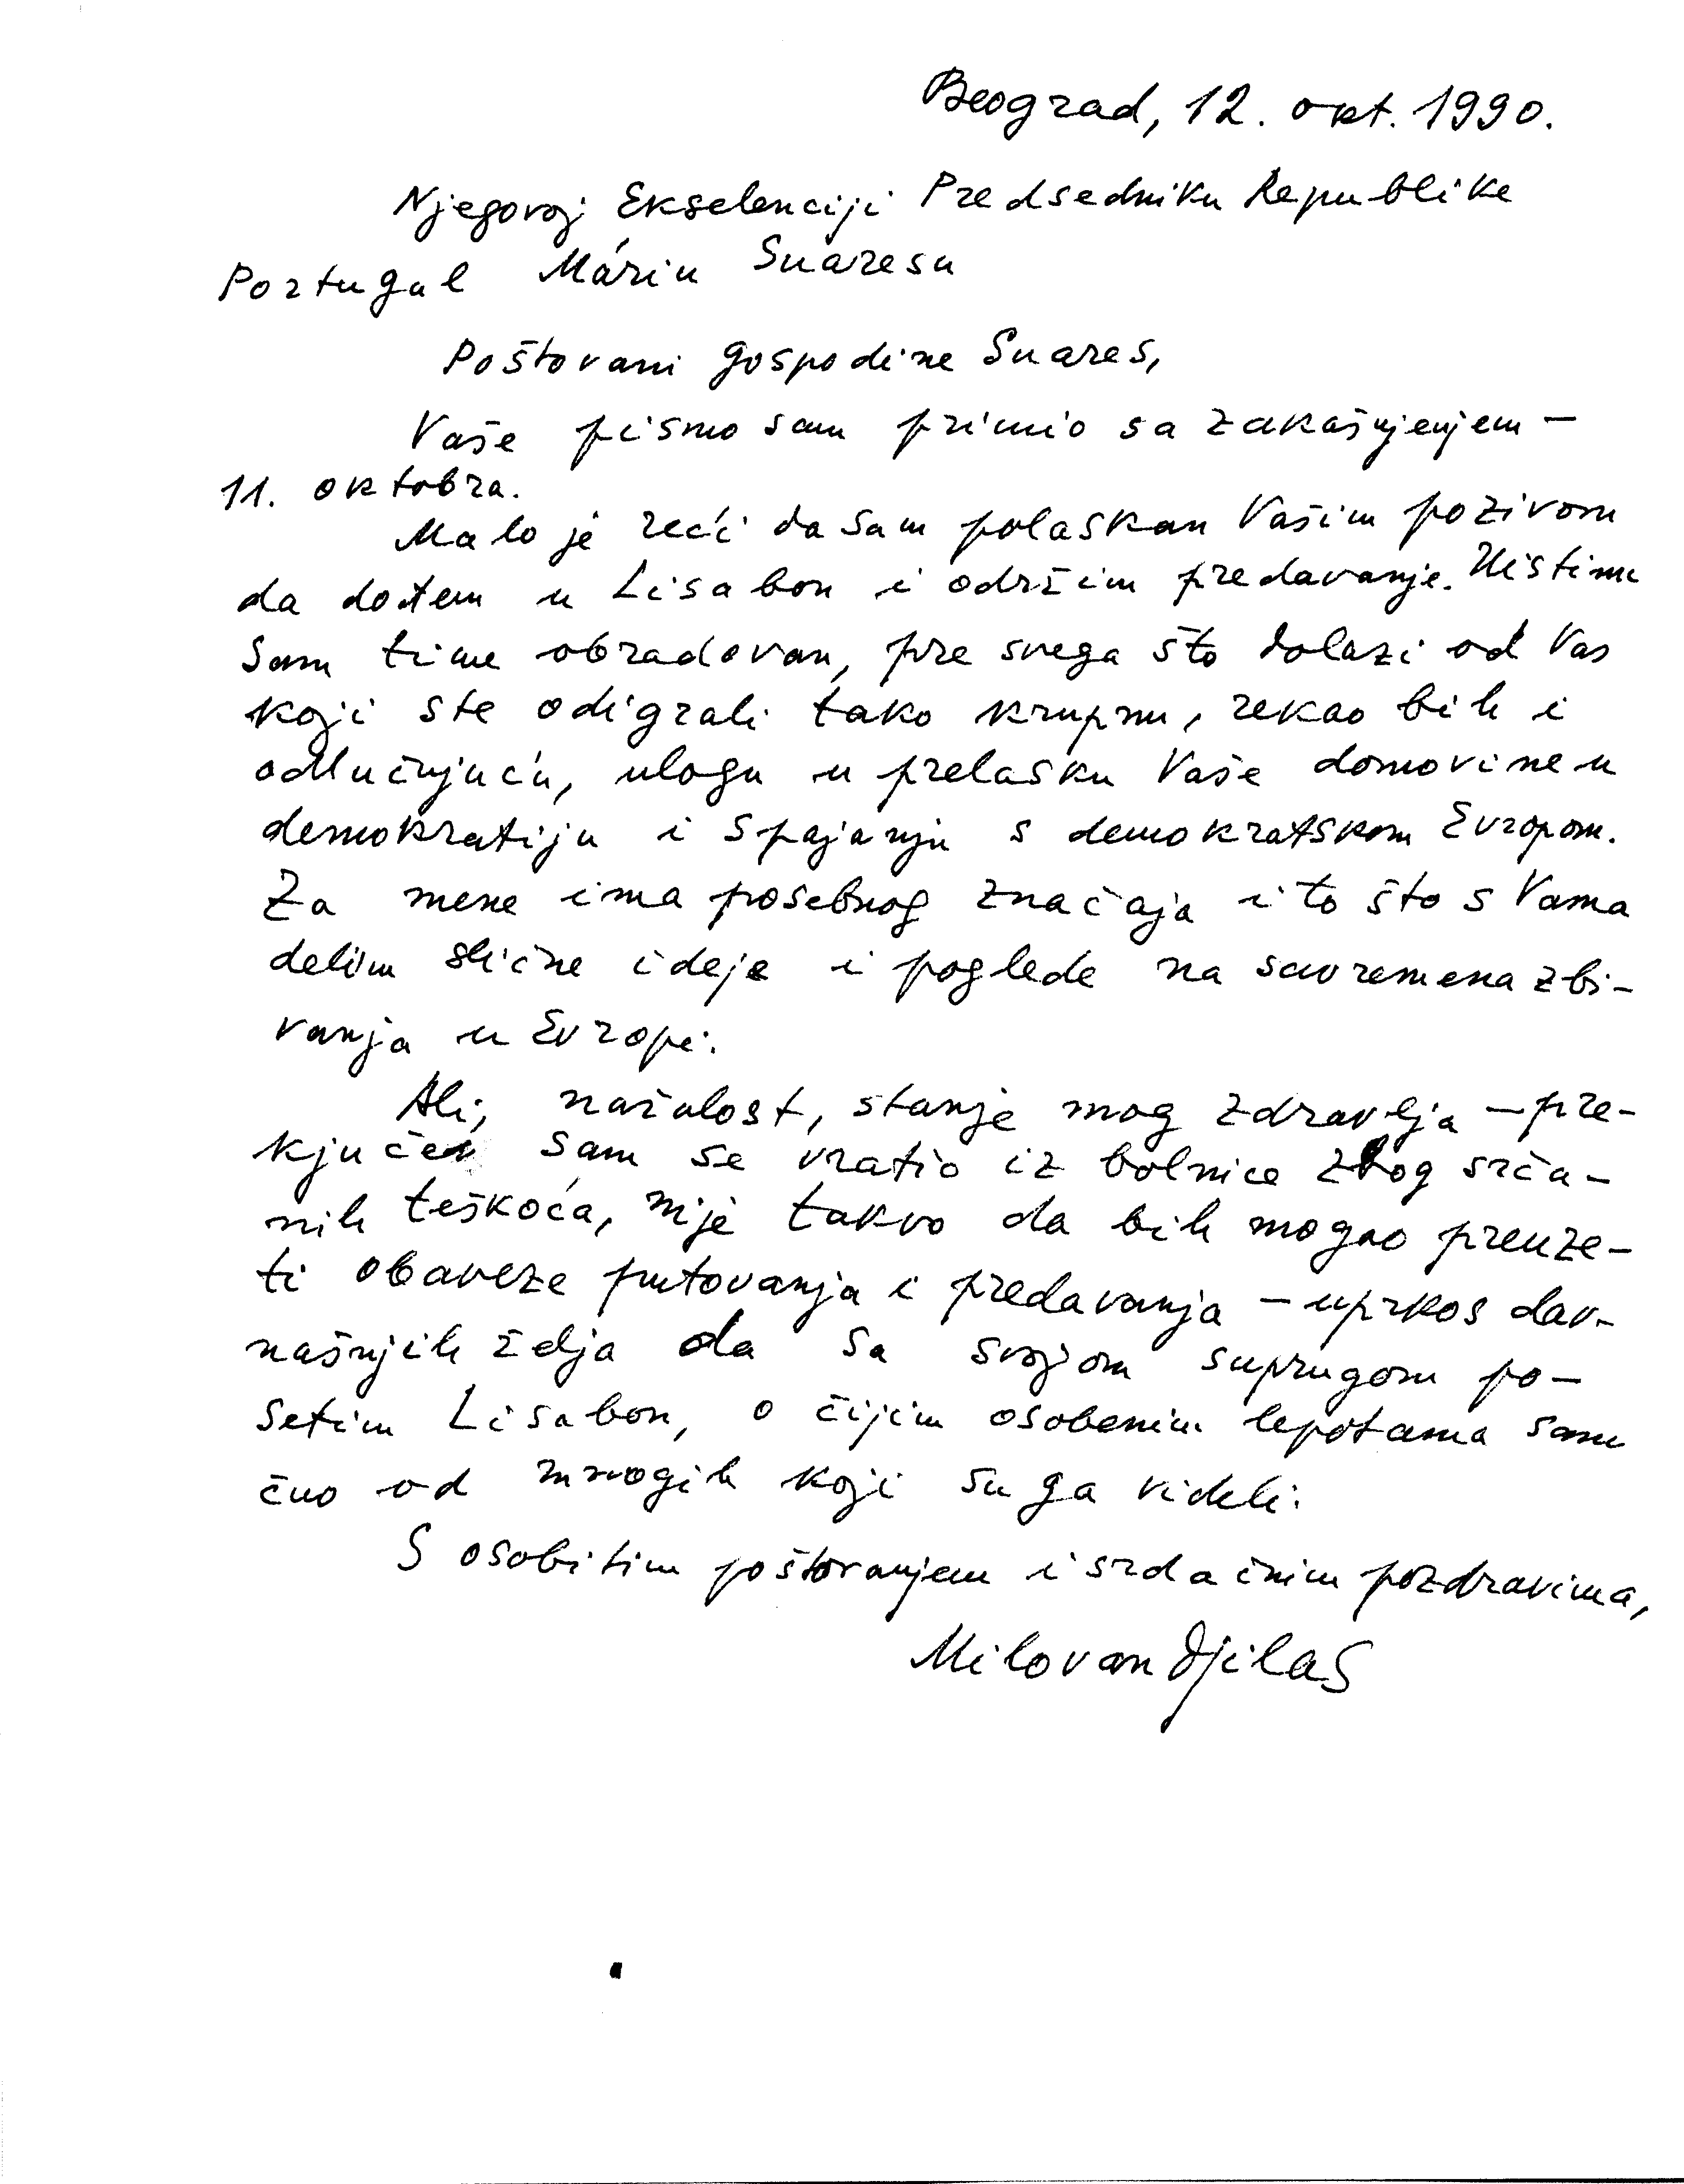 Beograd, 12. okt. 1990.
Njegovoj Ekselenciji Predsedniku Republike
Portugal Máriu Suaresu
Poštovani gospodine Suares,
Vaše pismo sam primio sa zakašnjenjem –
11. oktobra.
Malo je reći da sam polaskan Vašim pozivom
da dođem u Lisabon i održim predavanje. Uistinu
sam time obradovan, pre svega što dolazi od Vas
koji ste odigrali tako krupnu, rekao bih i
odlučujuću, ulogu u prelasku Vaše domovine u
demokratiju i spajanju s demokratskom Evropom.
Za mene ima posebnog značaja i to što s Vama
delim slične ideje i poglede na savremena zbi-
vanja u Evropi.
Ali, nažalost, stanje mog zdravlja – pre-
kjučer sam se vratio iz bolnice zbog srča-
nih teškoća, nije takvo da bih mogao preuze-
ti obaveze putovanja i predavanja – uprkos dav-
našnjih želja da sa svojom suprugom po-
setim Lisabon, o čijim osobenim lepotama sam
čuo od mnogih koji su ga videli.
S osobitim poštovanjem i srdačnim pozdravima,
Milovan Djilas